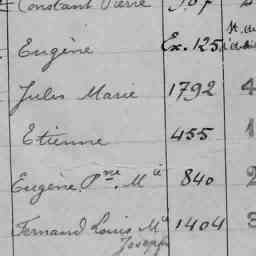 Constant Pierre 907
Eugène Ex. 125
Jules Marie 1792 4
Etienne 455 1
Eugène Pre. Mie 840 2
Fernand Louis Mie 1404 3
Joseph